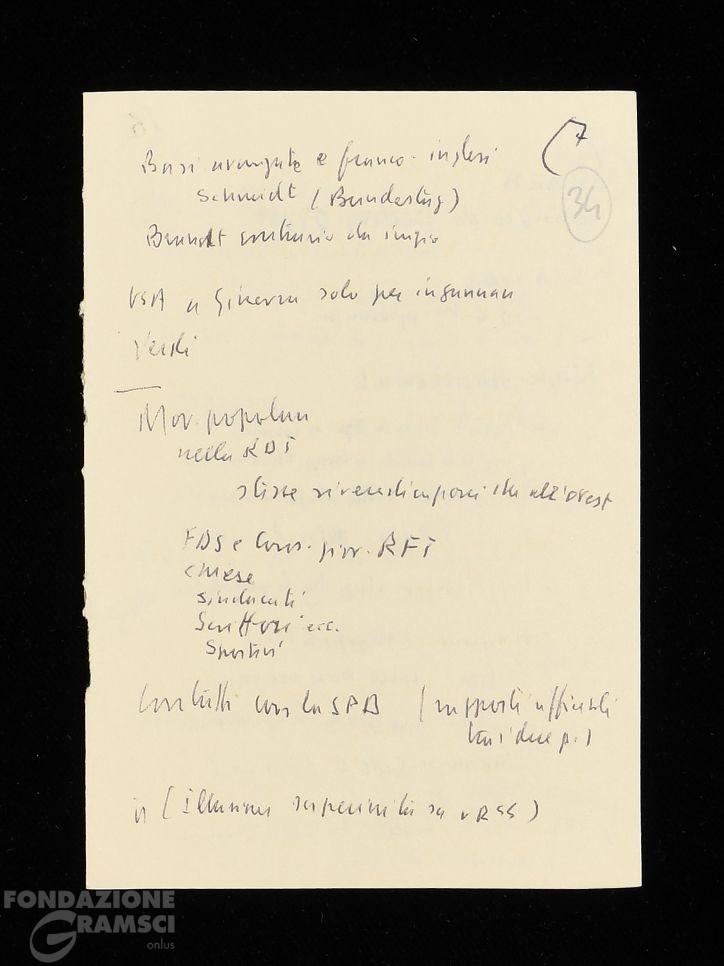 7
34
Basi avanzate e franco-inglesi
Schmidt (Bundestag)
Brandt contrario da
USA a Ginevra solo per ingannare
Verdi
Mov. popolare
nella RDT
stesse che all'ovest
FDG e giov. RFT
chiese
sindacati
Scrittori ecc.
Sportivi
Contatti con la SPD (rapporti ufficiali
tra i due p.)
(Illusioni superiorità su URSS)
FONDAZIONE
GRAMSCI
onlus